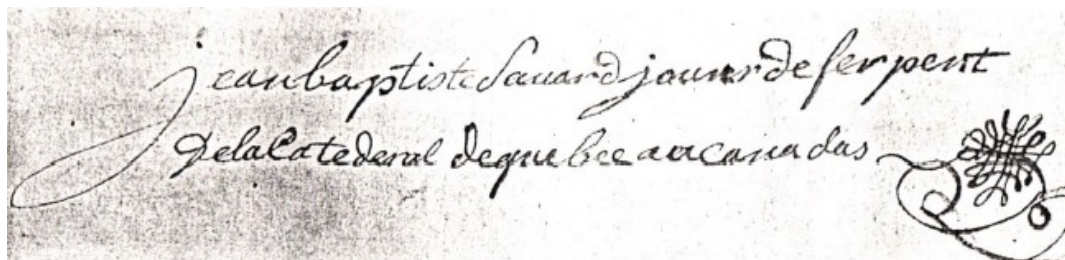 jean baptiste Savard joueur de serpent
De la Catederal de quebec au canadas